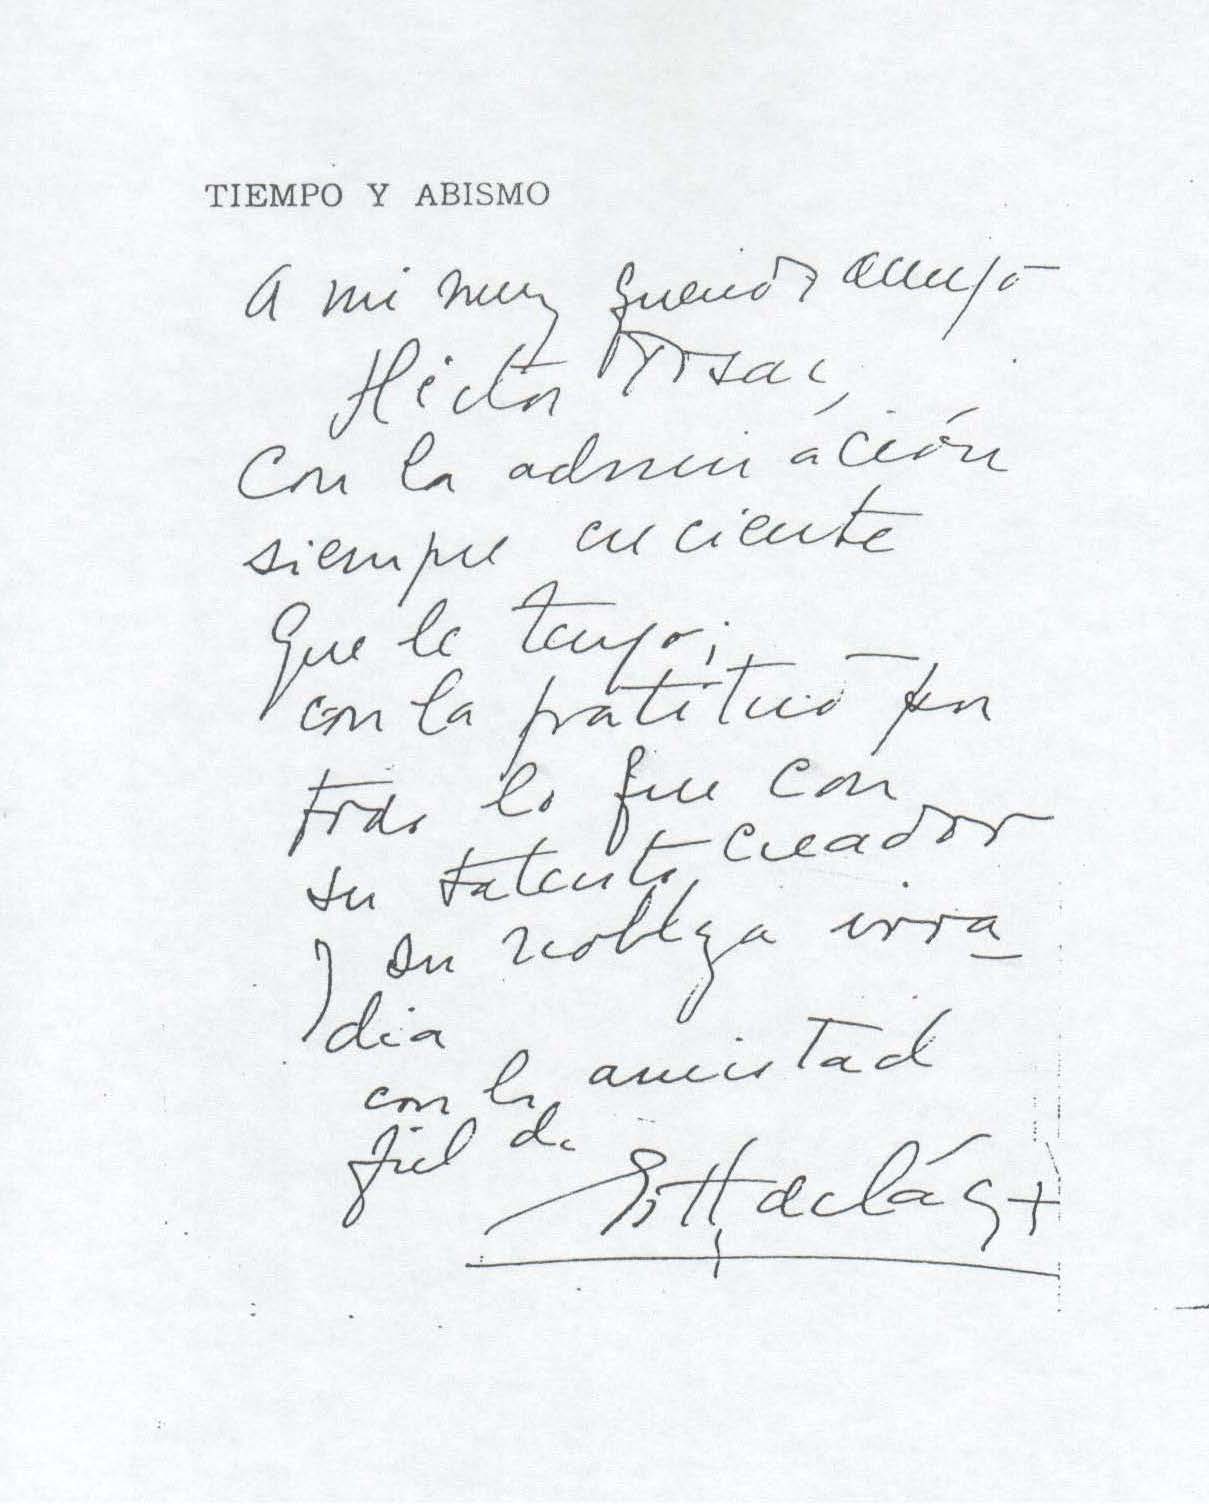 TIEMPO Y ABISMO
A mi muy querido amigo
Héctor
Con la admiración
siempre creciente
que le tengo;
con la gratitud por
todo lo que con
su talento creador
y su nobleza irra-
dia
con la amistad
fiel de